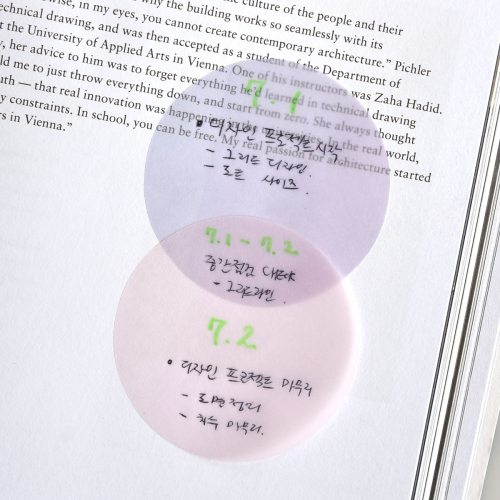 culture of the people and their
wise, in my eyes, you cannot create contemporary architecture.” Pichler
why the building works so seamlessly with its
technical drawing, and was then accepted as a student of the Department of
t the University of Applied Arts in Vienna. One of his instructors was Zaha Hadid.
, her advice to him was to forget everything he'd learned in technical drawing
ld me to just throw everything down, and start from zero. She always thought
uth — that real innovation was happening in the real world,
y constraints. In school, you can be free. My real passion for architecture started
rs in Vienna.”
7.1
• 디자인 프로젝트 시작
- 그리드 디자인.
- 폰트 사이즈.
7.1 - 7.2
중간점검
- 그리드라인.
7.2
• 디자인 프로젝트 마무리
- 도면정리
- 치수 마무리.